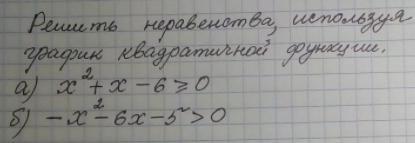 Решить неравенства, используя
график квадратичной функции.
а) x² + x - 6 ≥ 0
б) -x² - 6x - 5 > 0